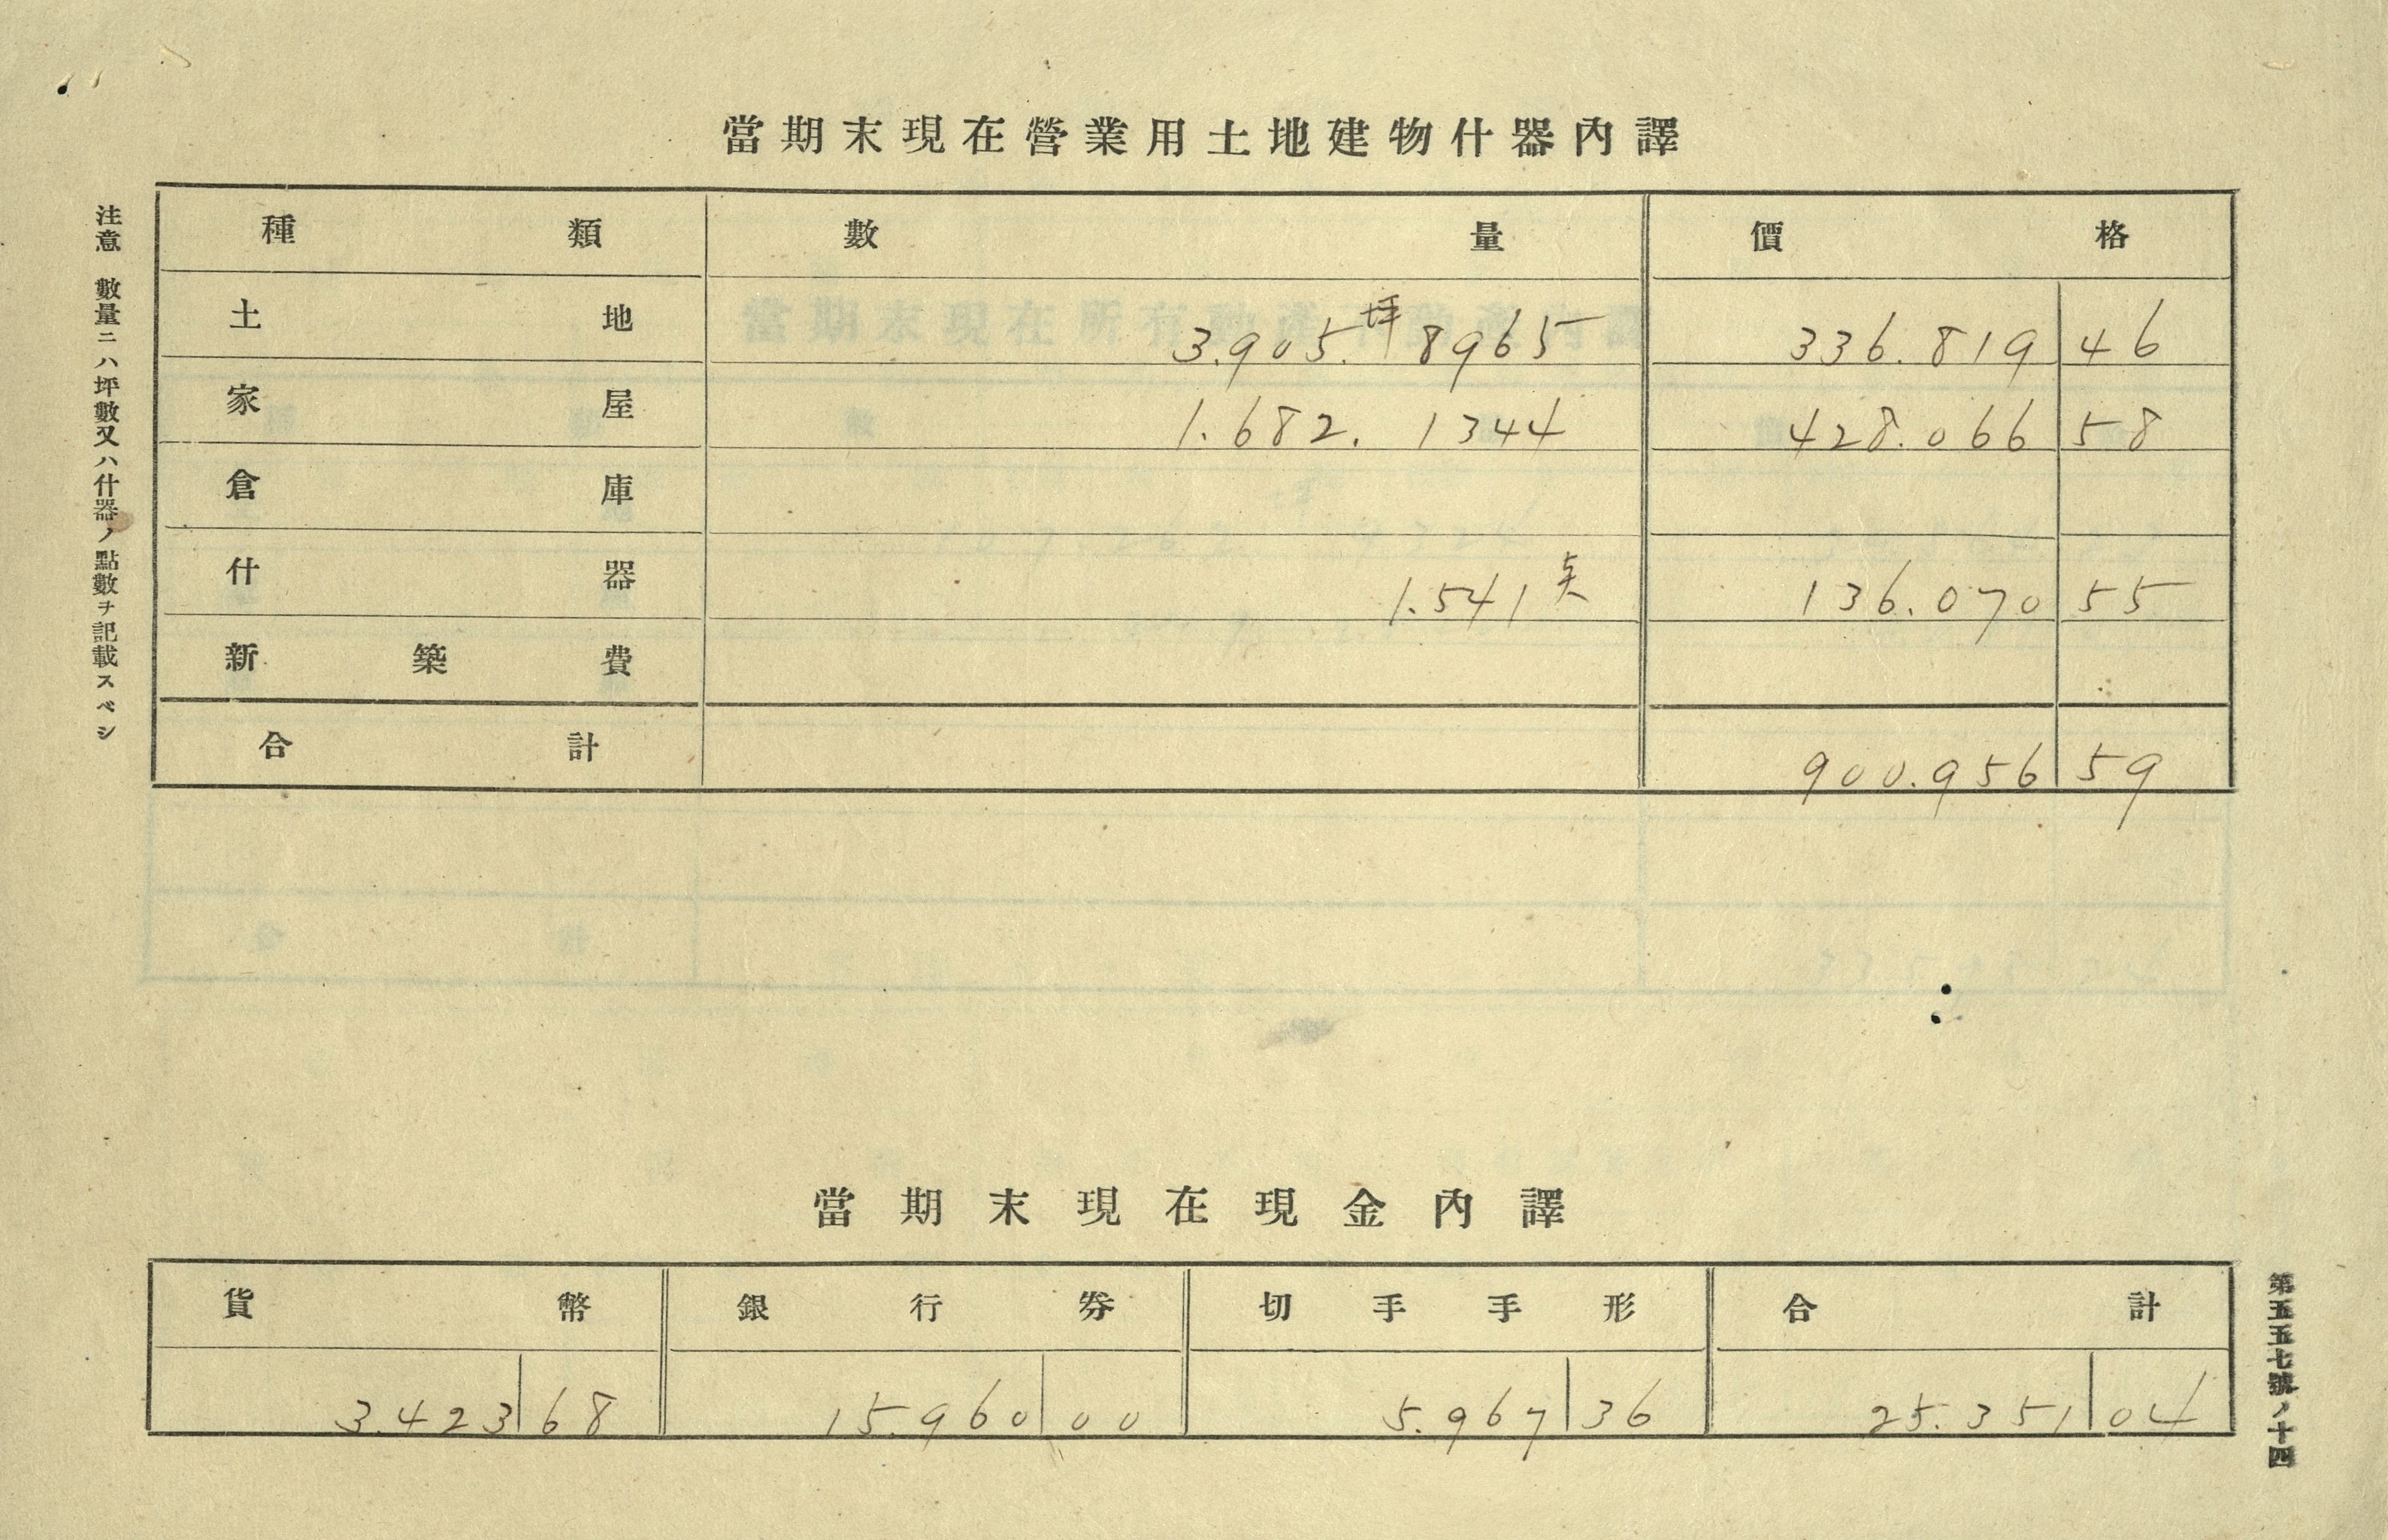 當期末現在營業用土地建物什器內譯
種類 數量 價格
土地 3.905.坪8965 336.819 46
家屋 1.682.1344 428.066 58
倉庫
什器 1.541点 136.070 55
新築費
合計 900.956 59
注意 數量ニハ坪數又ハ什器ノ點數ヲ記載スベシ
當期末現在現金內譯
貨幣 銀行券 切手手形 合計
3.423 68 15.960 00 5.967 36 25.351 04
第五五七號ノ十四